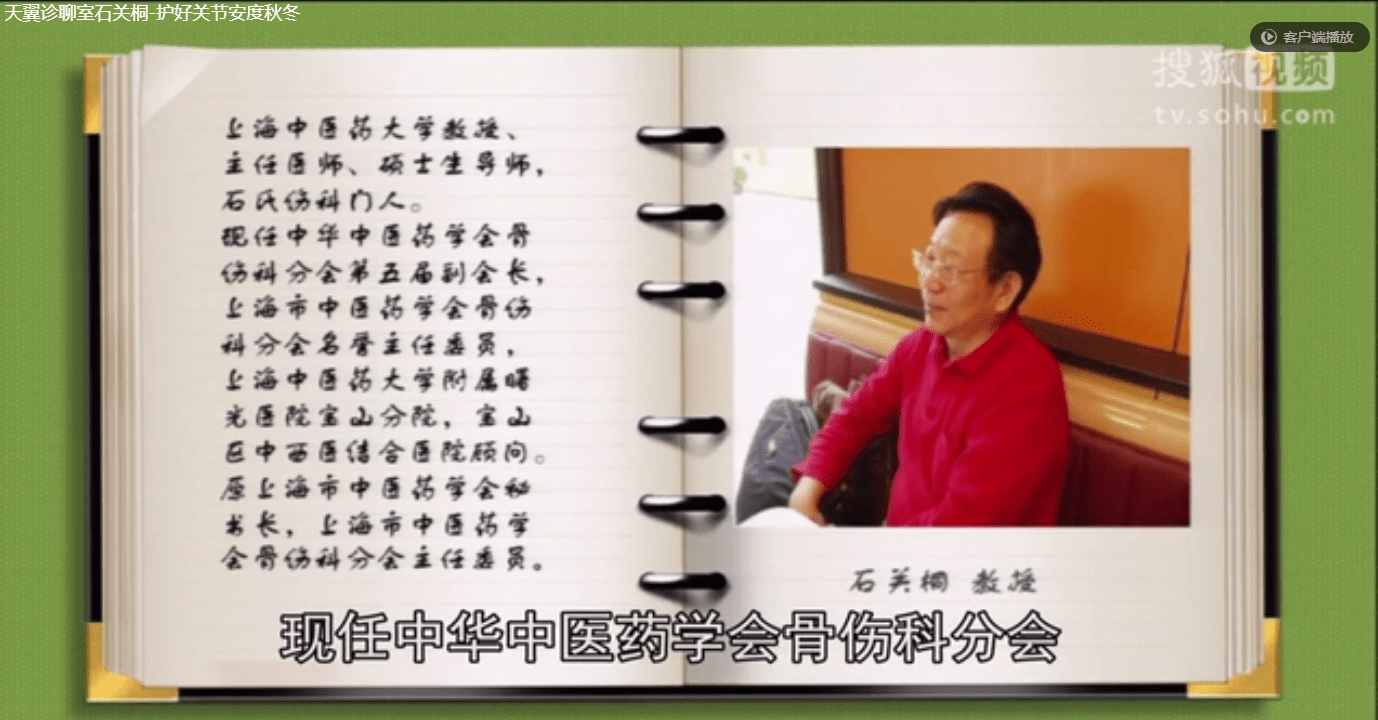 天翼诊聊室石关桐-护好关节安度秋冬
客户端播放
搜狐视频
tv.sohu.com
上海中医药大学教授、
主任医师、硕士生导师，
石氏伤科门人。
现任中华中医药学会骨
伤科分会第五届副会长，
上海市中医药学会骨伤
科分会名誉主任委员，
上海中医药大学附属曙
光医院宝山分院，宝山
区中西医结合医院顾问。
原上海市中医药学会秘
书长，上海市中医药学
会骨伤科分会主任委员。
石关桐 教授
现任中华中医药学会骨伤科分会